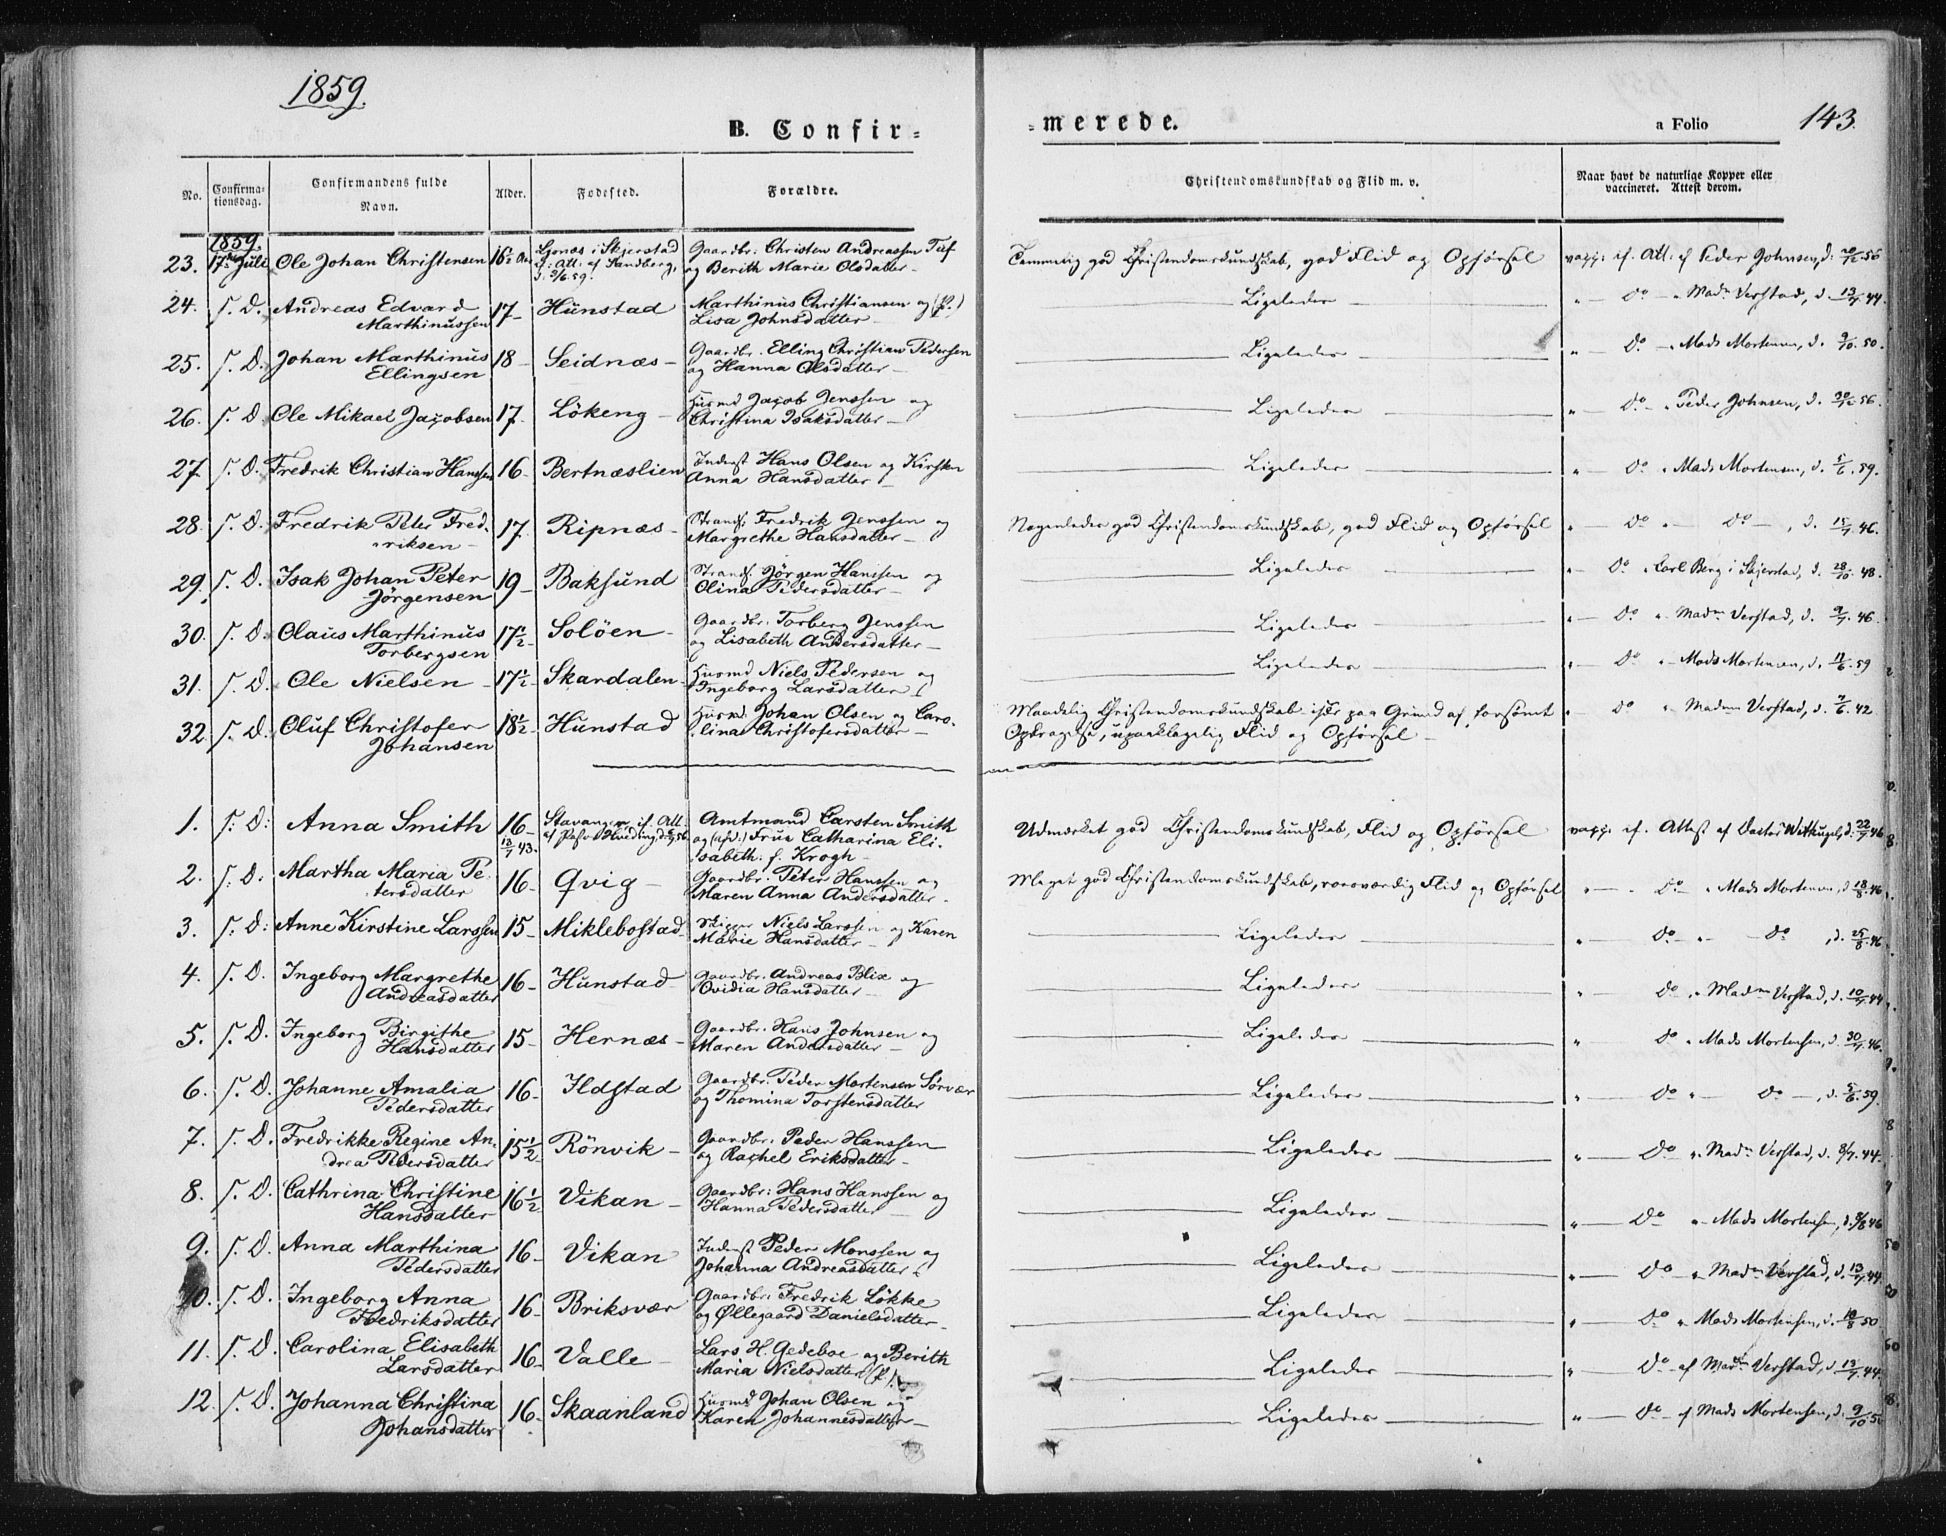 1859.
B. Confir=
=merede.
a Folio
143.
No.
Confirma-
tionsdag.
Confirmandens fulde
Navn.
Alder.
Fødested.
Forældre.
Christendomskundskab og Flid m. v.
Naar havt de naturlige Kopper eller
vaccineret. Attest derom.
1859.
23. 17de Juli Ole Johan Christensen 16½ Ljønes i Skjerstad Gaardbr. Christen Andreassen
if. Att. af Sandberg, og Berith Marie Olsdatter
d. 2/6.59.
Temmelig god Christendomskundskab, god Flid og Opførsel vacc. if. Att. af Peder Johnsen, d. 56
24. s. D. Andreas Edvard 17 Hunstad Marthinus Christiansen og
Marthinussen Lisa Johnsdatter
Ligeledes " Do " Madm Verstad, d. 13/7 44.
25. s. D. Johan Marthinus 18 Seidnæs Gaardbr. Elling Christian Pedersen
Ellingsen og Hanna Olsdatter
Ligeledes " Do " Mads Mortensen, d. 9/10.50.
26. s. D. Ole Mikael Jacobsen 17 Lökeng Husmd Jacob Jenssen og
Christina Isaksdatter
Ligeledes " Do " Peder Johnsen, d. 56.
27. s. D. Fredrik Christian Hanssen 16 Bertnæslien Inderst Hans Olsen og Kirsten
Anna Hansdatter
Ligeledes " Do " Mads Mortensen, d. 5/6.59.
28. s. D. Fredrik Peter Fred- 17 Ripnæs Strands. Fredrik Jenssen og
riksen Margrethe Hansdatter
Nogenledes god Christendomskundskab, god Flid og Opførsel " Do " Do, d. 15/7.46.
29. s. D. Isak Johan Peter 19 Baksund Strands. Jörgen Hanssen og
Jörgensen Olina Pedersdatter
Ligeledes " Do " Carl Berg i Skjerstad, d. 28/10.48.
30. s. D. Claus Marthinus 17½ Solöen Gaardbr. Torberg Jenssen
Torbergsen og Lisabeth Andersdatter
Ligeledes " Do " Madm Verstad, d. 9/7.46.
31. s. D. Ole Nielsen 17½ Skardalen Husmd Niels Pedersen og
Ingeborg Larsdatter
Ligeledes " Do " Mads Mortensen, d. 11/6.59
32. s. D. Oluf Christofer 18½ Hunstad Husmd. Johan Olsen og Caro-
Johansen lina Christofersdatter
Maadelig Christendomskundskab især paa Grund af forsømt " Do " Madm Verstad, d. 7/6.42
Opdragelse, upaaklagelig Flid og Opførsel
1. s. D. Anna Smith 16 Stavanger, if. Att. Amtmand Carsten Smith
13/7 43. af Hvoding og (afd.) Frue Catharina Eli-
sabeth f. Krogh
Udmærket god Christendomskundskab, Flid og Opførsel vacc. if. Attest af d. 22/7 46
2. s. D. Martha Maria Pe- 16 Qvig Gaardbr. Peter Hanssen og
tersdatter Maren Anna Andersdatter
Meget god Christendomskundskab, roesværdig Flid og Opførsel " Do " Mads Mortensen, d. 18/8.46.
3. s. D. Anne Kirstine Larssen 15 Miklebostad Skipper Niels Larssen og Karen
Marie Hansdatter
Ligeledes " Do " Do, d. 25/8.46.
4. s. D. Ingeborg Margrethe 16 Hunstad Gaardbr. Andreas Blix og
Andreasdatter Ovidia Hansdatter
Ligeledes " Do " Madm Verstad, d. 10/7.44.
5. s. D. Ingeborg Birgithe 15 Hernæs Gaardbr. Hans Johnsen og
Hansdatter Maren Andersdatter
Ligeledes " Do " Mads Mortensen, d. 30/7.46.
6. s. D. Johanne Amalia 16 Ildstad Gaardbr. Peder Mortensen Sörvær
Pedersdatter og Thomina Torstensdatter
Ligeledes " Do " Do, d. 5/6.59.
7. s. D. Fredrikke Regine An- 15½ Rönvik Gaardbr. Peder Hanssen
drea Pedersdatter og Rachel Eriksdatter
Ligeledes " Do " Madm Verstad, d. 8/7.44.
8. s. D. Cathrina Christine 16½ Vikan Gaardbr. Hans Hanssen og
Hansdatter Hanna Pedersdatter
Ligeledes " Do " Mads Mortensen, d. 46
9. s. D. Anna Marthina 16 Vikan Inderst Peder Monssen og
Pedersdatter Johanna Andreasdatter
Ligeledes " Do " Madm Verstad, d. 13/7.44.
10. s. D. Ingeborg Anna 16 Briksvær Gaardbr. Fredrik Lökke
Fredriksdatter og Øllegaard Danielsdatter
Ligeledes " Do " Mads Mortensen, d. 18/8 50
11. s. D. Carolina Elisabeth 16 Valle Lars H. Gedeboe og Berith
Larsdatter Maria Nielsdatter
Ligeledes " Do af Madm Verstad, d. 13/7.44.
12. s. D. Johanna Christina 16 Skaanland Husmd Johan Olsen og
Johansdatter Karen Johannesdatter
Ligeledes " Do af Mads Mortensen, d. 9/10